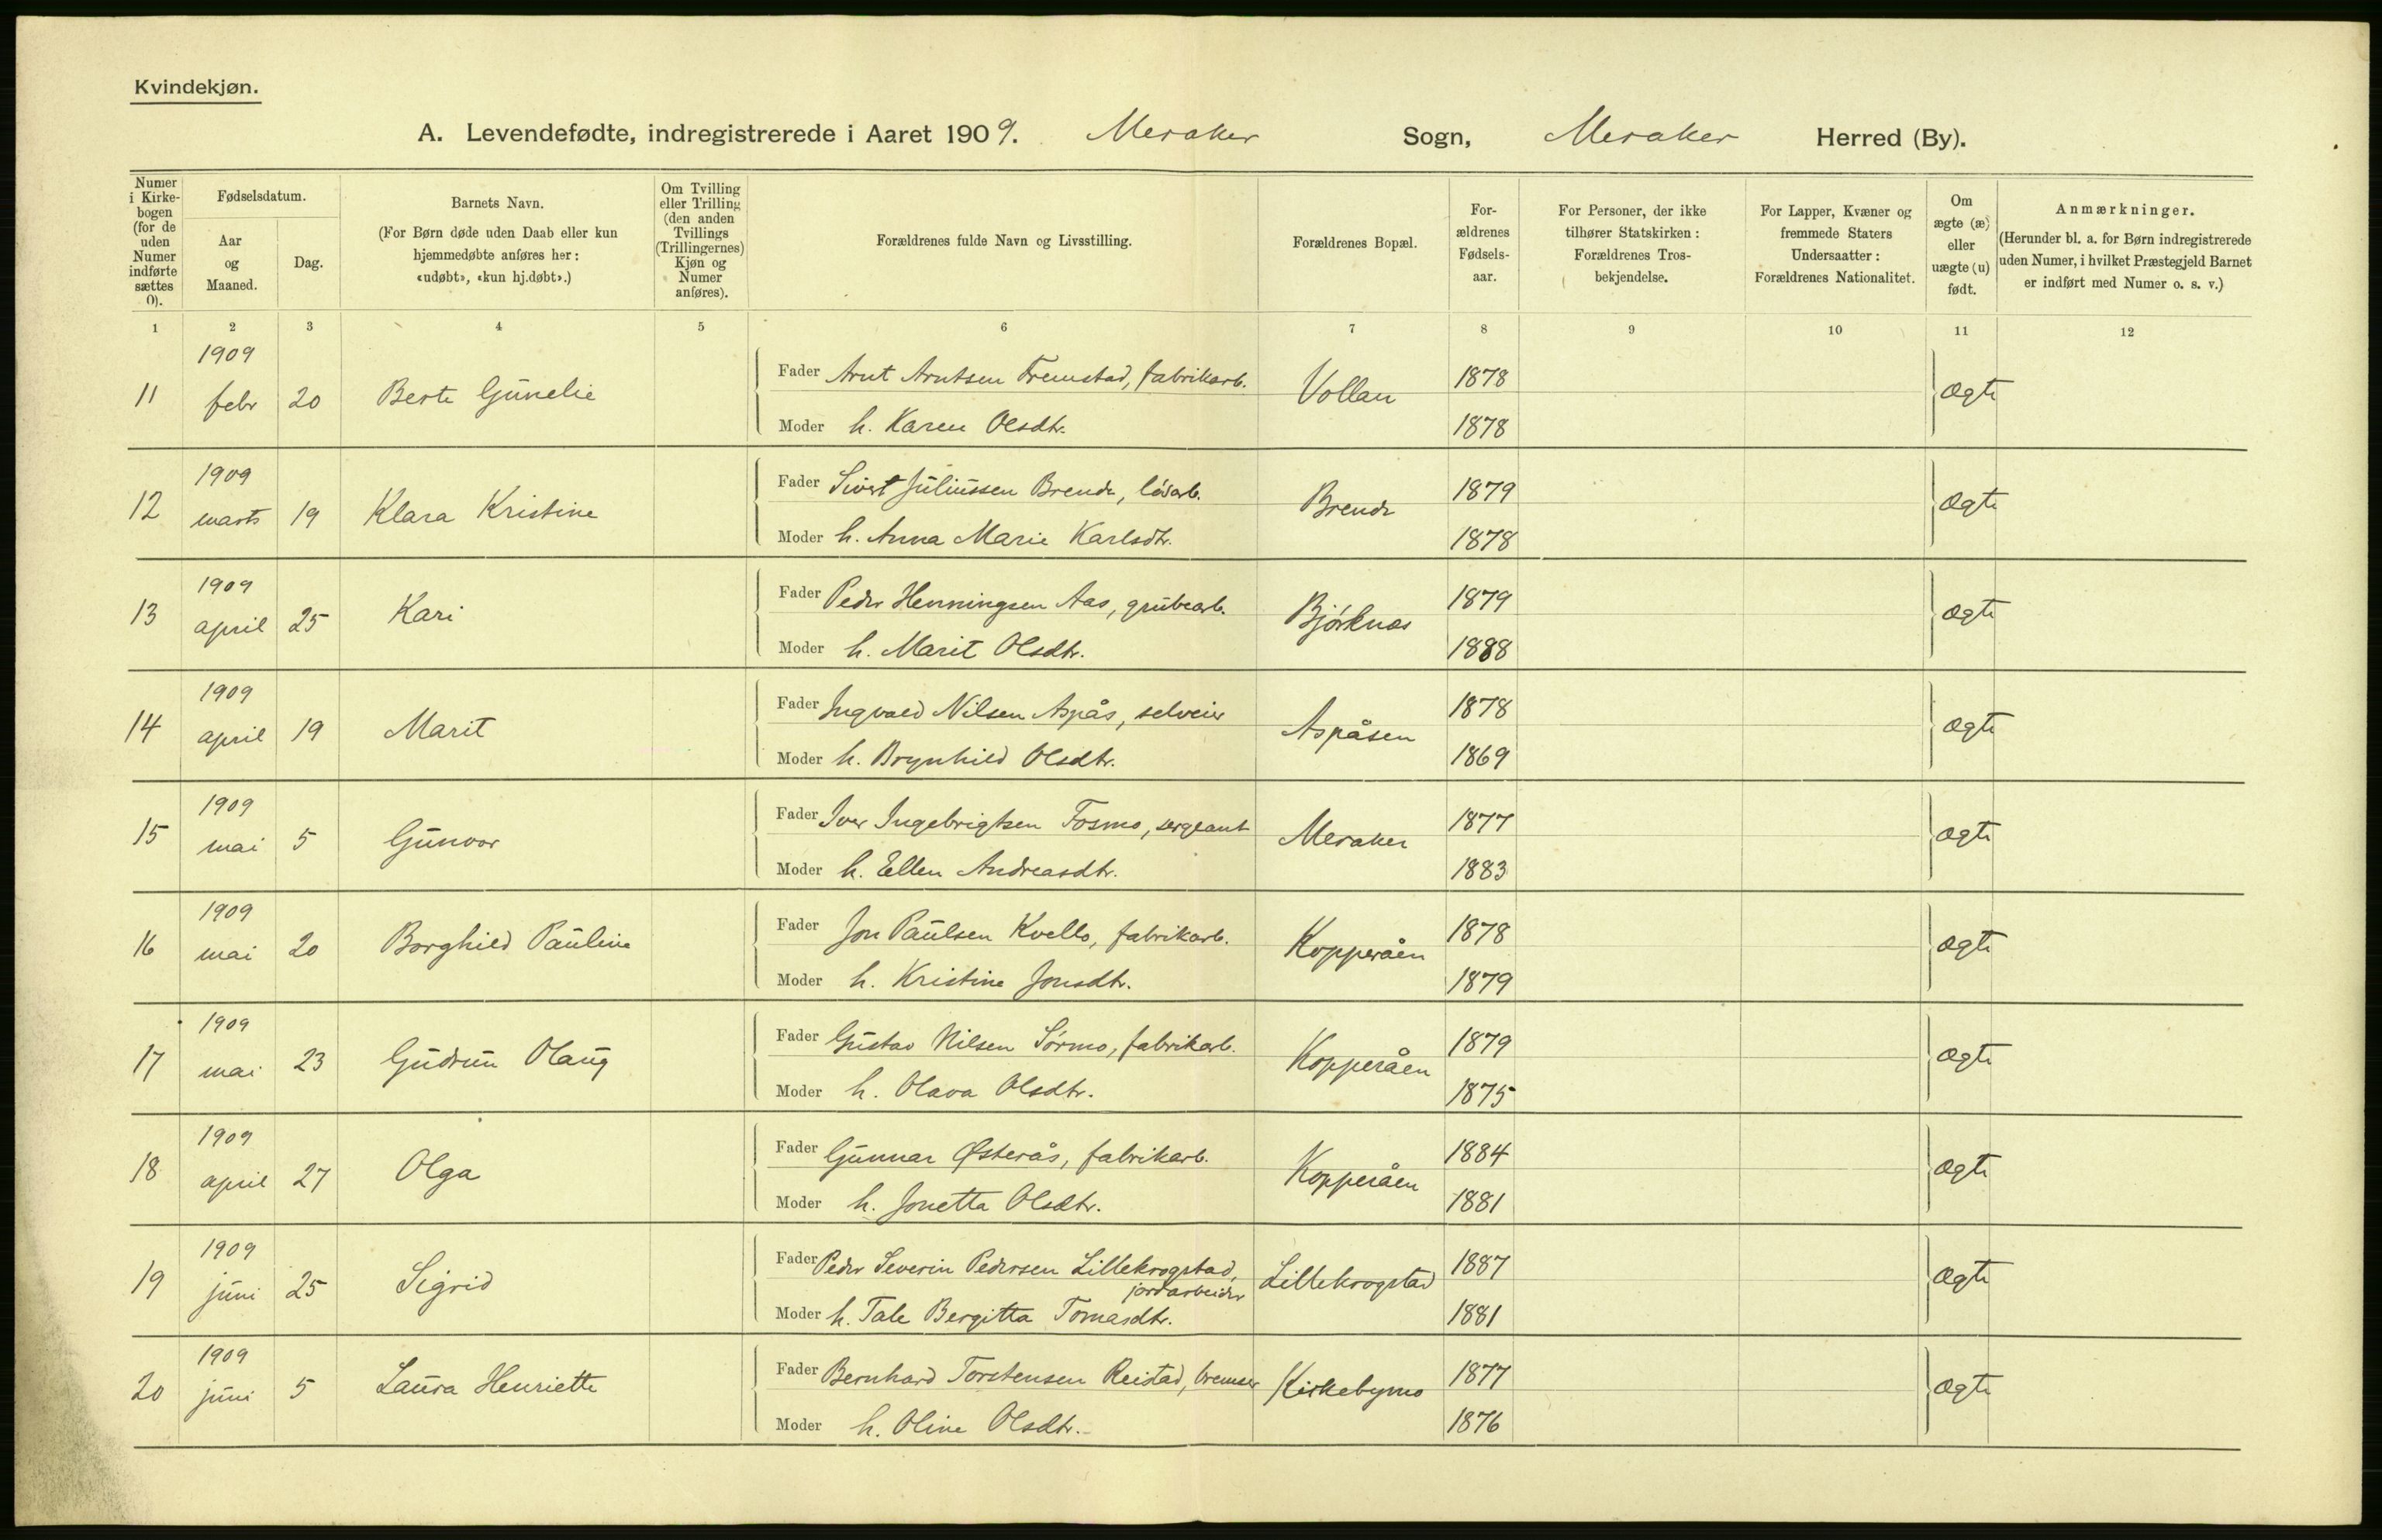 Kvindekjøn.
A. Levendefødte, indregistrerede i Aaret 1909. Meraker Sogn, Meraker Herred (By).
Numer i Kirkebogen (for de uden Numer indførte sættes 0).
Fødselsdatum.
Aar og Maaned.
Dag.
Barnets Navn.
(For Børn døde uden Daab eller kun hjemmedøbte anføres her: «udøbt», «kun hj.døbt».)
Om Tvilling eller Trilling (den anden Tvillings (Trillingernes) Kjøn og Numer anføres).
Forældrenes fulde Navn og Livsstilling.
Forældrenes Bopæl.
Forældrenes Fødselsaar.
For Personer, der ikke tilhører Statskirken: Forældrenes Trosbekjendelse.
For Lapper, Kvæner og fremmede Staters Undersaatter: Forældrenes Nationalitet.
Om ægte (æ) eller uægte (u) født.
Anmærkninger.
(Herunder bl. a. for Børn indregistrerede uden Numer, i hvilket Præstegjeld Barnet er indført med Numer o. s. v.)
1 2 3 4 5 6 7 8 9 10 11 12
11 1909 febr 20 Berte Gunelie Fader Arnt Arntsen Fremstad, fabrikarb. Vollan 1878 Ægte
Moder h. Karen Olsdtr. 1878
12 1909 marts 19 Klara Kristine Fader Sivert Juliussen Brende, løsarb. Brende 1879 Ægte
Moder h. Anna Marie Karlsdtr. 1878
13 1909 april 25 Kari Fader Peder Henningsen Aas, grubearb. Bjørknes 1879 Ægte
Moder h. Marit Olsdtr. 1888
14 1909 april 19 Marit Fader Ingvald Nilsen Aspås, selveier Aspåsen 1878 Ægte
Moder h. Brynhild Olsdtr. 1869
15 1909 mai 5 Gunvor Fader Iver Ingebrigtsen Fosmo, sergeant Meraker 1877 Ægte
Moder h. Ellen Andreasdtr. 1883
16 1909 mai 20 Borghild Pauline Fader Jon Paulsen Kvello, fabrikarb. Kopperåen 1878 Ægte
Moder h. Kristine Jonsdtr. 1879
17 1909 mai 23 Gudrun Olaug Fader Gustav Nilsen Sørmo, fabrikarb. Kopperåen 1879 Ægte
Moder h. Olava Olsdtr. 1875
18 1909 april 27 Olga Fader Gunnar Østerås, fabrikarb. Kopperåen 1884 Ægte
Moder h. Jonetta Olsdtr. 1881
19 1909 juni 25 Sigrid Fader Peder Severin Pedersen Lillekrogstad, jordarbeider Lillekrogstad 1887 Ægte
Moder h. Tale Bergitta Tomasdtr. 1881
20 1909 juni 5 Laura Henriette Fader Bernhard Torstensen Reistad, bremser Kirkebymo 1877 Ægte
Moder h. Oline Olsdtr. 1876